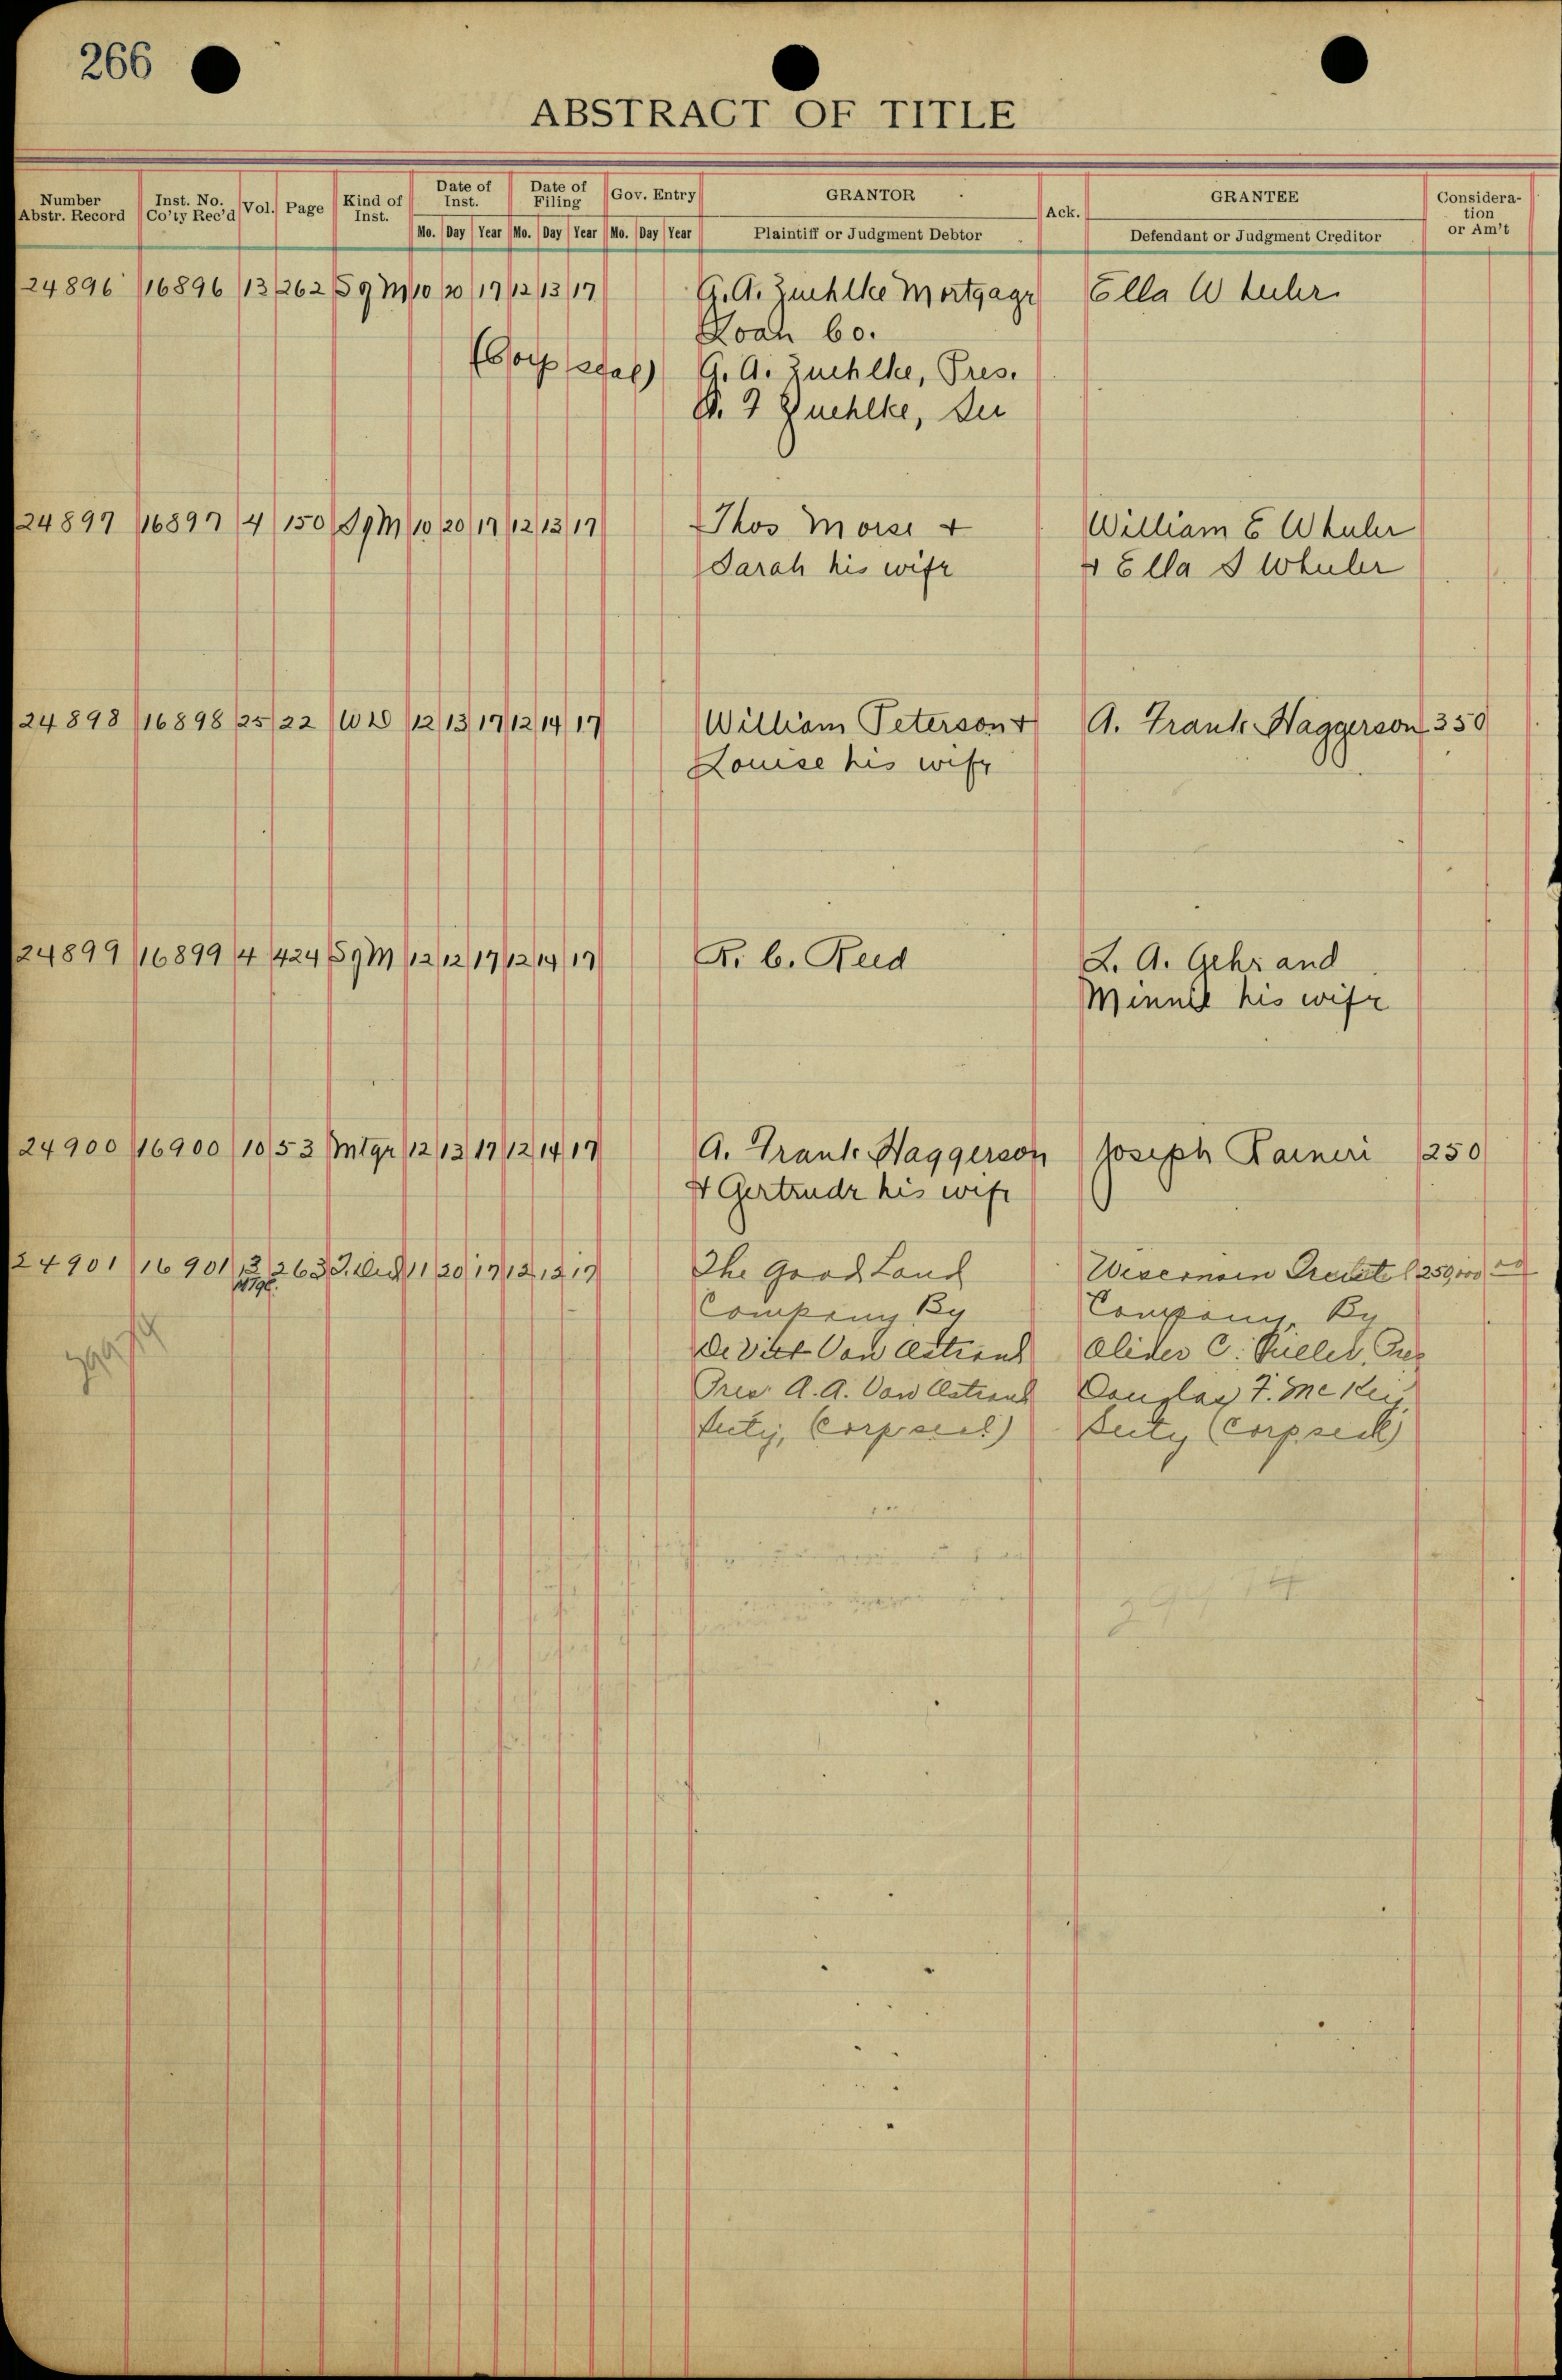 266
ABSTRACT OF TITLE
Number Abstr. Record Inst. No. Co'ty Rec'd Vol. Page Kind of Inst. Date of Inst. Date of Filing Gov. Entry GRANTOR Ack. GRANTEE Consideration or Am't
Mo. Day Year Mo. Day Year Mo. Day Year Plaintiff or Judgment Debtor Defendant or Judgment Creditor
24896 16896 13 262 Sg M 10 20 17 12 13 17 G. A. Zuehlke Mortgage Ella
Loan Co.
(Corp seal) G. A. Zuehlke, Pres.
Zuehlke, Sec
24897 16897 4 150 Sg M 10 20 17 12 13 17 Thos Morse + William E Wheeler
Sarah his wife + Ella S Wheeler
24898 16898 25 22 WD 12 13 17 12 14 17 William Peterson + A. Frank Haggerson 350
Louise his wife
24899 16899 4 424 Sg M 12 12 17 12 14 17 F. C. Reed L. A. Gehr and
Minnie his wife
24900 16900 10 53 Mtge 12 13 17 12 14 17 A. Frank Haggerson Joseph Raineri 1250
+ Gertrude his wife
24901 16901 13 263 11 20 17 12 12 17 The Good Land Wisconsin
Mtge.
Company By Company, By
De Witt Van Ostrand Oliver C. Fuller, Pres
Pres A. A. Van Ostrand Douglas F. McKey
Secty, (Corp seal) Secty (Corp seal)